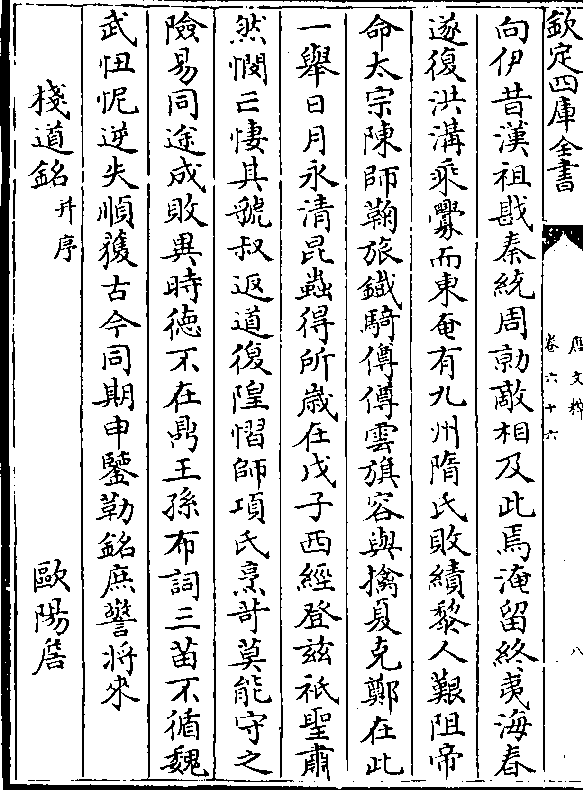 欽定四庫全書
唐文粹
卷六十六
八
向伊昔漢祖戡秦統周勍敵相及此焉淹留終夷海春
遂復洪溝乘釁而東奄有九州隋氏敗績黎人艱阻帝
命太宗陳師鞠旅鐡騎僔僔雲旗容與擒夏克鄭在此
一舉日月永清昆蟲得所歳在戊子西經登兹祇聖肅
然憫亡悽其虢叔返道復隍慴師項氏烹苛莫能守之
險易同途成敗異時徳不在鼎王孫布詞三苗不循魏
武忸怩逆失順獲古今同期申鑒勒銘庶警将來
棧道銘并序
歐陽詹